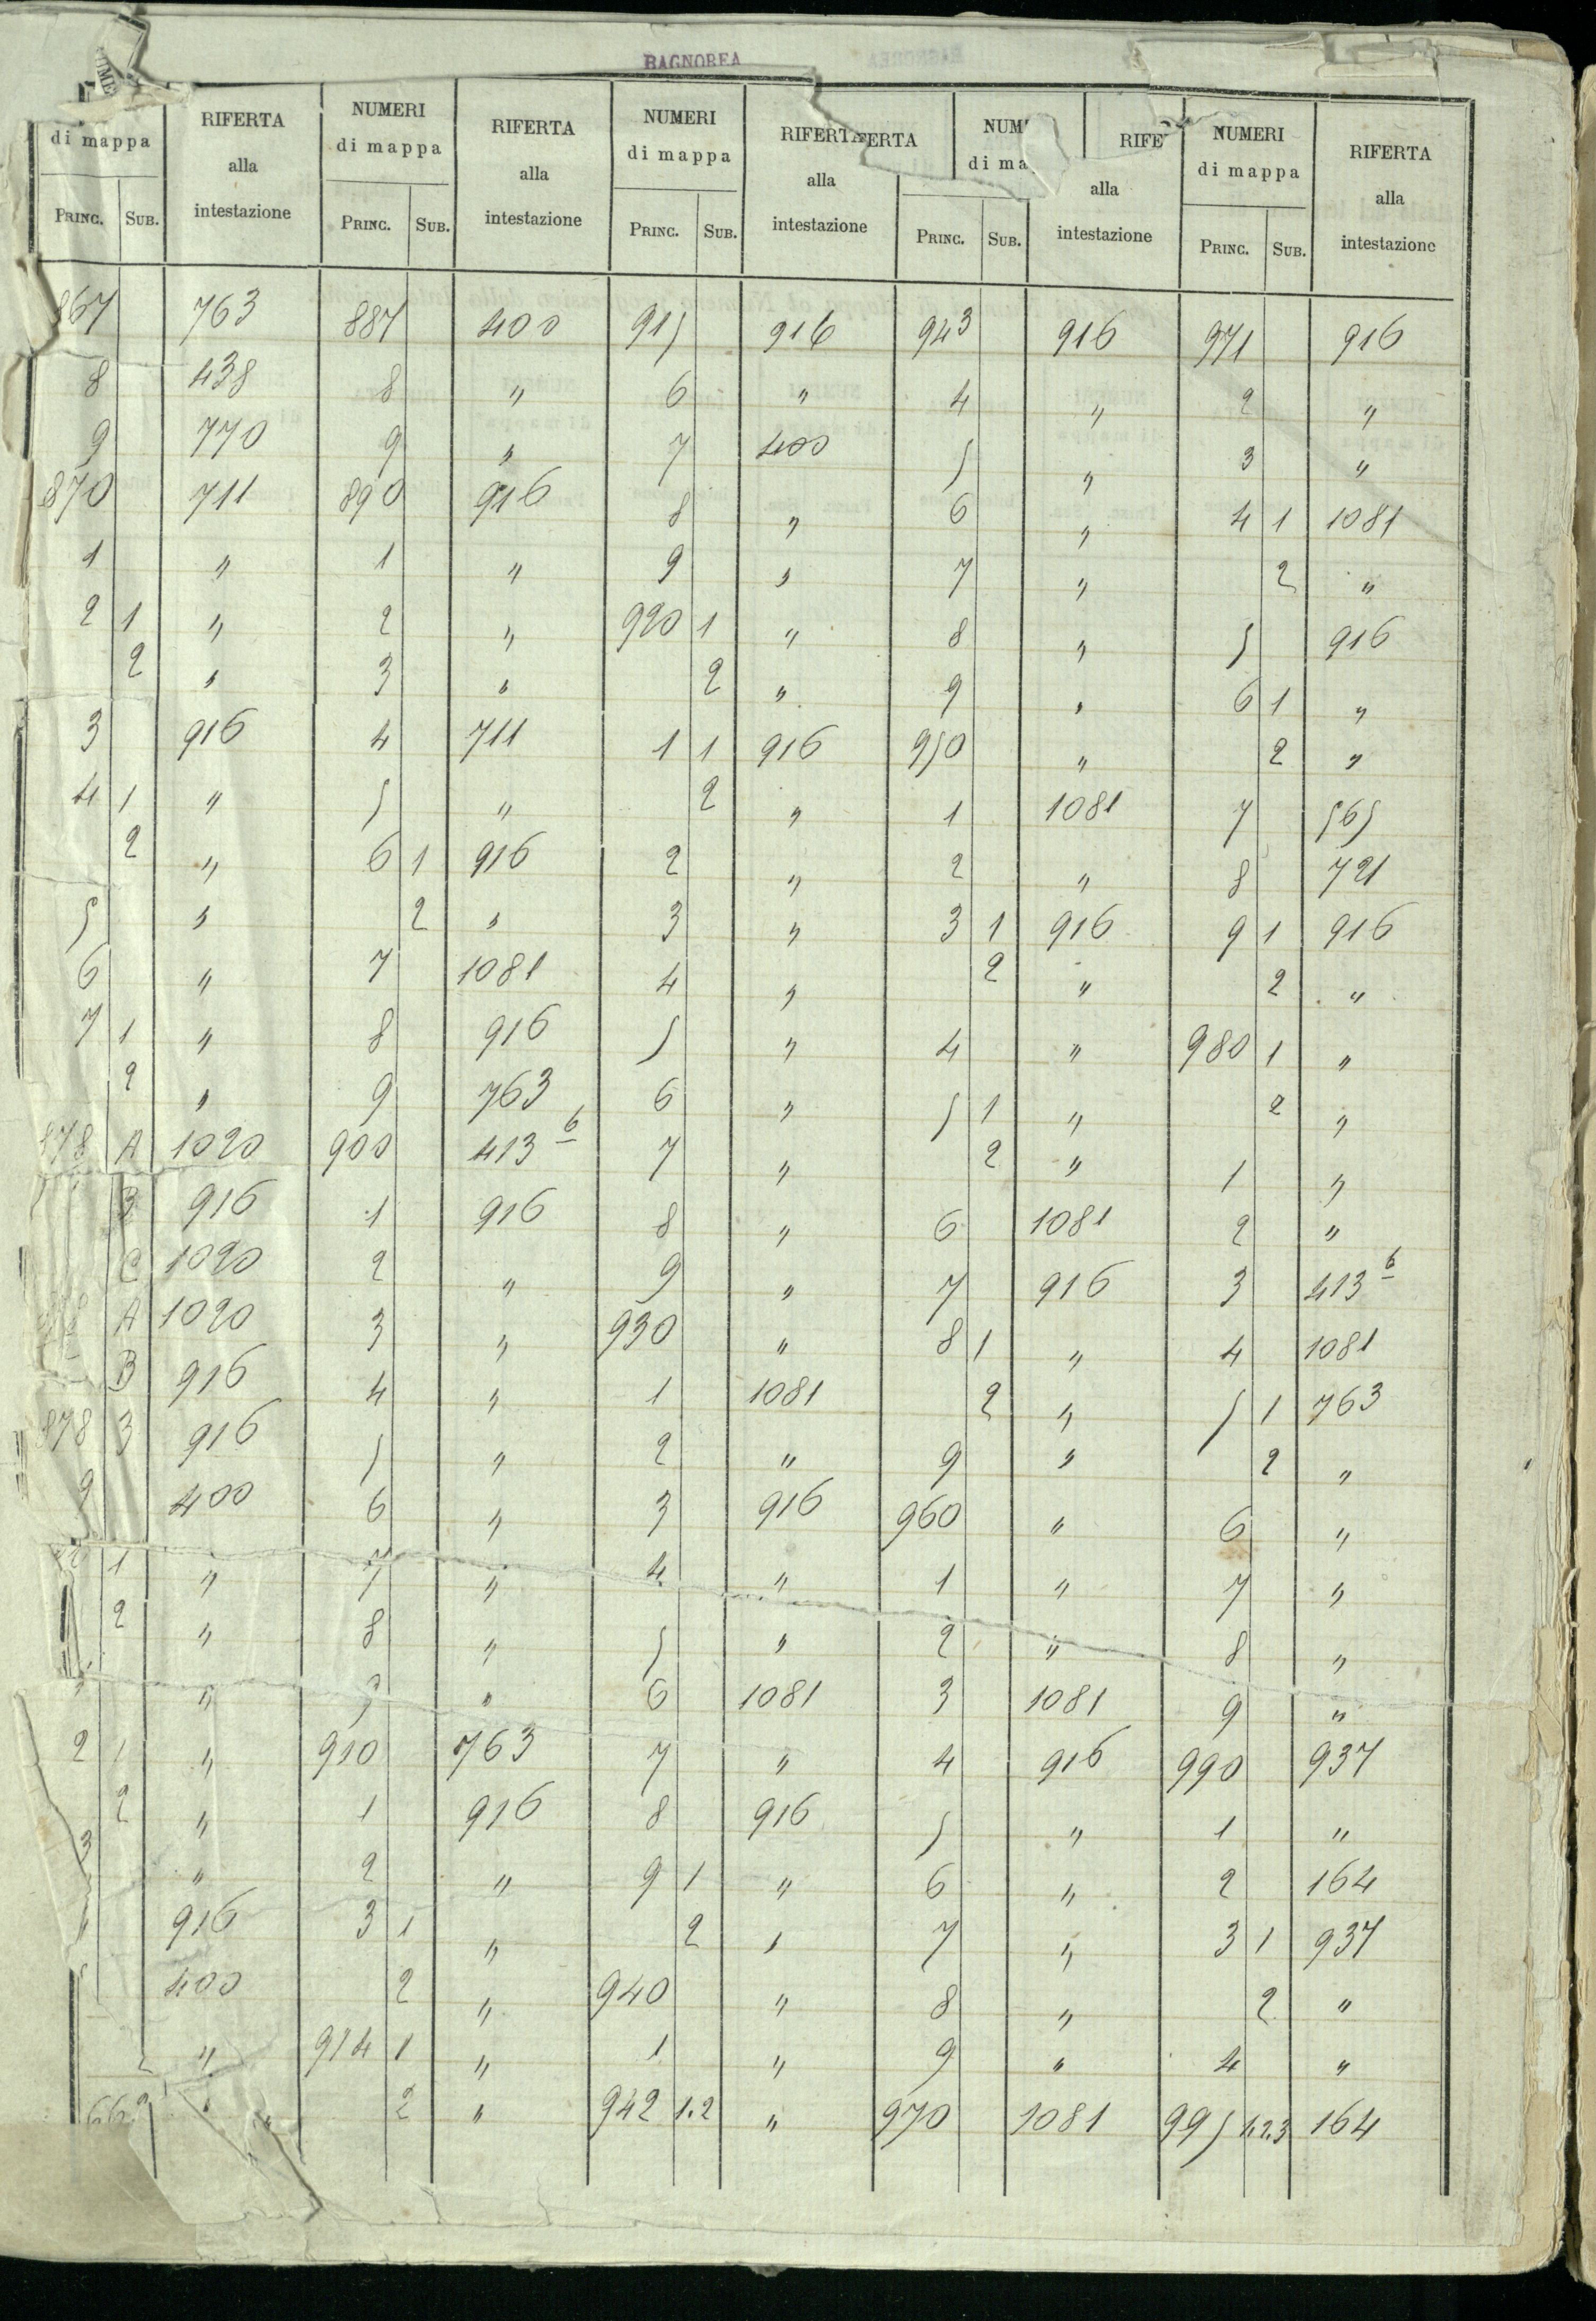 BAGNOREA
di mappa | RIFERTA alla intestazione | NUMERI di mappa | RIFERTA alla intestazione | NUMERI di mappa | RIFERTA alla intestazione | NUM di ma | RIFE alla intestazione | NUMERI di mappa | RIFERTA alla intestazione
PRINC. | SUB. | PRINC. | SUB. | PRINC. | SUB. | PRINC. | SUB. | PRINC. | SUB.
867 | | 763 | 887 | | 400 | 915 | | 916 | 943 | | 916 | 971 | | 916
8 | | 438 | 8 | | " | 6 | | " | 4 | | " | 2 | | "
9 | | 770 | 9 | | " | 7 | | 400 | 5 | | " | 3 | | "
870 | | 711 | 890 | | 916 | 8 | | " | 6 | | " | 4 | 1 | 1081
1 | | " | 1 | | " | 9 | | " | 7 | | " | | 2 | "
2 | 1 | " | 2 | | " | 920 | 1 | " | 8 | | " | 5 | | 916
| 2 | " | 3 | | " | | 2 | " | 9 | | " | 6 | 1 | "
3 | | 916 | 4 | | 711 | 1 | 1 | 916 | 950 | | " | | 2 | "
4 | 1 | " | 5 | | " | | 2 | " | 1 | | 1081 | 7 | | 565
| 2 | " | 6 | 1 | 916 | 2 | | " | 2 | | " | 8 | | 721
5 | | " | | 2 | " | 3 | | " | 3 | 1 | 916 | 9 | 1 | 916
6 | | " | 7 | | 1081 | 4 | | " | | 2 | " | | 2 | "
7 | 1 | " | 8 | | 916 | 5 | | " | 4 | | " | 980 | 1 | "
| 2 | " | 9 | | 763 | 6 | | " | 5 | 1 | " | | 2 | "
878 | A | 1020 | 900 | | 413 6 | 7 | | " | | 2 | " | 1 | | "
| B | 916 | 1 | | 916 | 8 | | " | 6 | | 1081 | 2 | | "
| C | 1020 | 2 | | " | 9 | | " | 7 | | 916 | 3 | | 413 6
| A | 1020 | 3 | | " | 930 | | " | 8 | 1 | " | 4 | | 1081
| B | 916 | 4 | | " | 1 | | 1081 | | 2 | " | 5 | 1 | 763
878 | 3 | 916 | 5 | | " | 2 | | " | 9 | | " | | 2 | "
9 | | 400 | 6 | | " | 3 | | 916 | 960 | | " | 6 | | "
| 1 | " | 7 | | " | 4 | | " | 1 | | " | 7 | | "
| 2 | " | 8 | | " | 5 | | " | 2 | | " | 8 | | "
| | " | 9 | | " | 6 | | 1081 | 3 | | 1081 | 9 | | "
2 | 1 | " | 910 | | 763 | 7 | | " | 4 | | 916 | 990 | | 937
| 2 | " | 1 | | 916 | 8 | | 916 | 5 | | " | 1 | | "
3 | | " | 2 | | " | 9 | 1 | " | 6 | | " | 2 | | 164
| | 916 | 3 | 1 | " | | 2 | " | 7 | | " | 3 | 1 | 937
| | 400 | | 2 | " | 940 | | " | 8 | | " | | 2 | "
| | " | 914 | 1 | " | 1 | | " | 9 | | " | 4 | | "
| | " | | 2 | " | 942 | 1.2 | " | 970 | | 1081 | 995 | 1.2.3 | 164